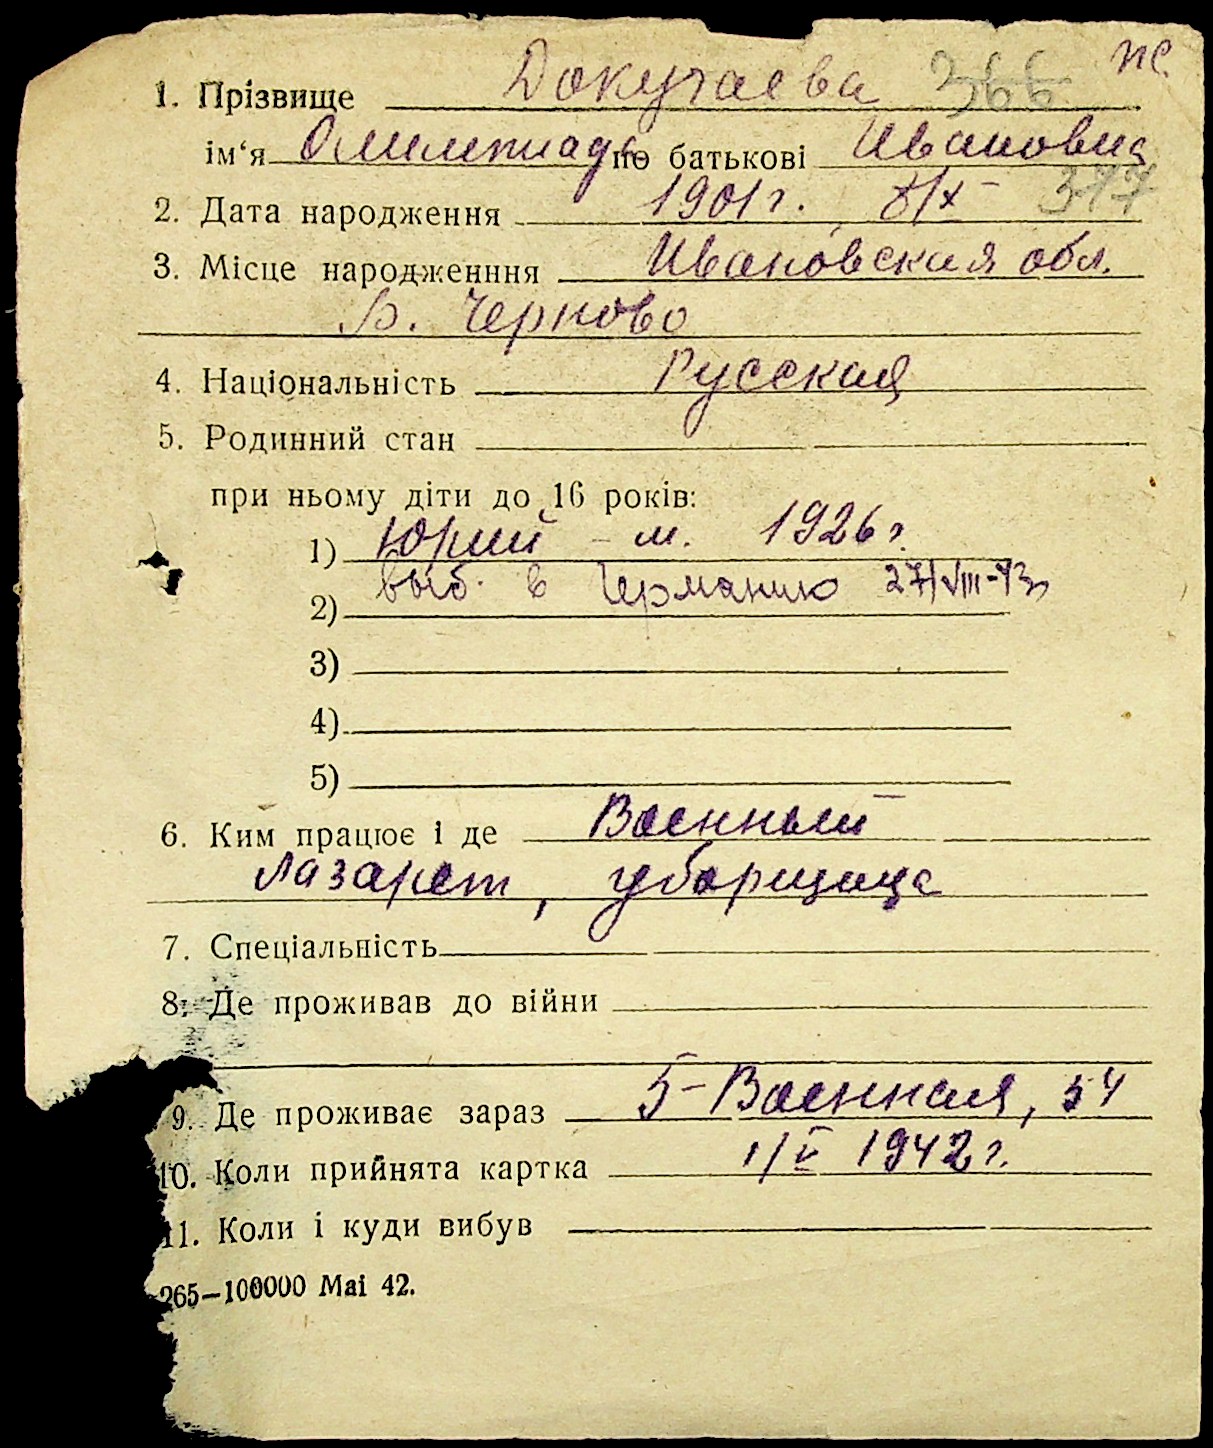 1. Прізвище Докучаева 366 ж.
ім‘я Олимпиада по батькові Ивановна
2. Дата народження 1901 г. 377
3. Місце народженння Ивановская обл.
Черново
4. Національність Русская
5. Родинний стан
при ньому діти до 16 років:
1) Юрий - м. 1926 г.
2) выб. в Германию 27/VIII-43
3)
4)
5)
6. Ким працює і де Военный
лазарет, уборщица
7. Спеціальність
8. Де проживав до війни
9. Де проживає зараз 5-Военная, 54
10. Коли прийнята картка 1/V 1942 г.
11. Коли і куди вибув
265—100000 Маі 42.